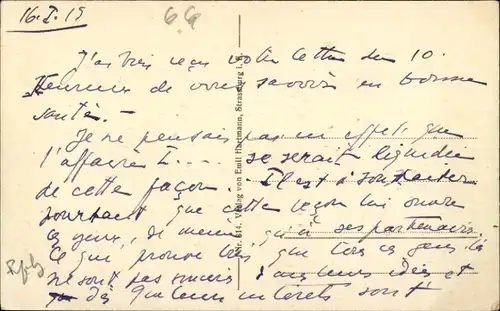 16.I.19
66
J'ai bien reçu votre lettre du 10.
Heureux de vous savoir en bonne
santé. -
Je ne pensais pas en effet que
l'affaire I.... se serait liquidée
de cette façon. Il est à souhaiter
pourtant que cette leçon lui ouvre
les yeux, de même qu'à ses partenaires.
Ce que prouve bien que tous ces gens là
ne sont pas sincères dans leurs idées et
dès que leurs intérêts sont
Nr. 814. Verlag von Emil Hartmann, Strassburg i. E.